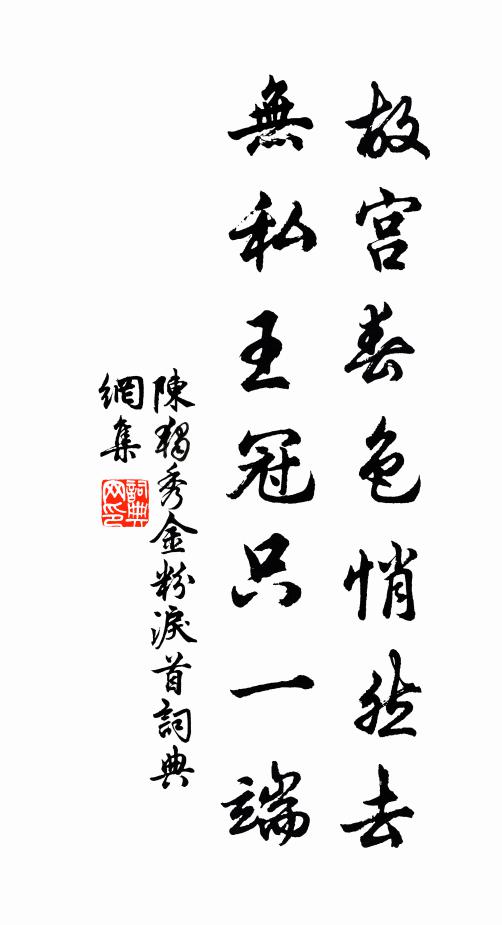 故宮春色悄然去
無私王冠只一端
陳獨秀金粉淚首詞典
網集
詞典
网印